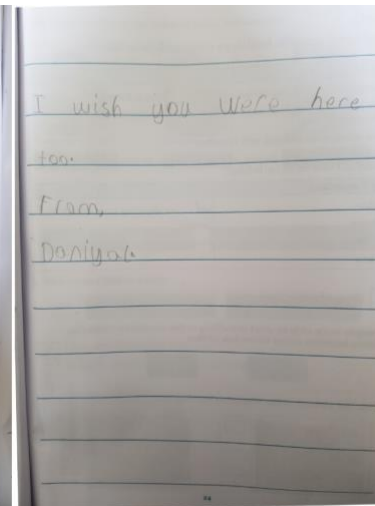 I wish you were here
too.
From,
Daniyal.